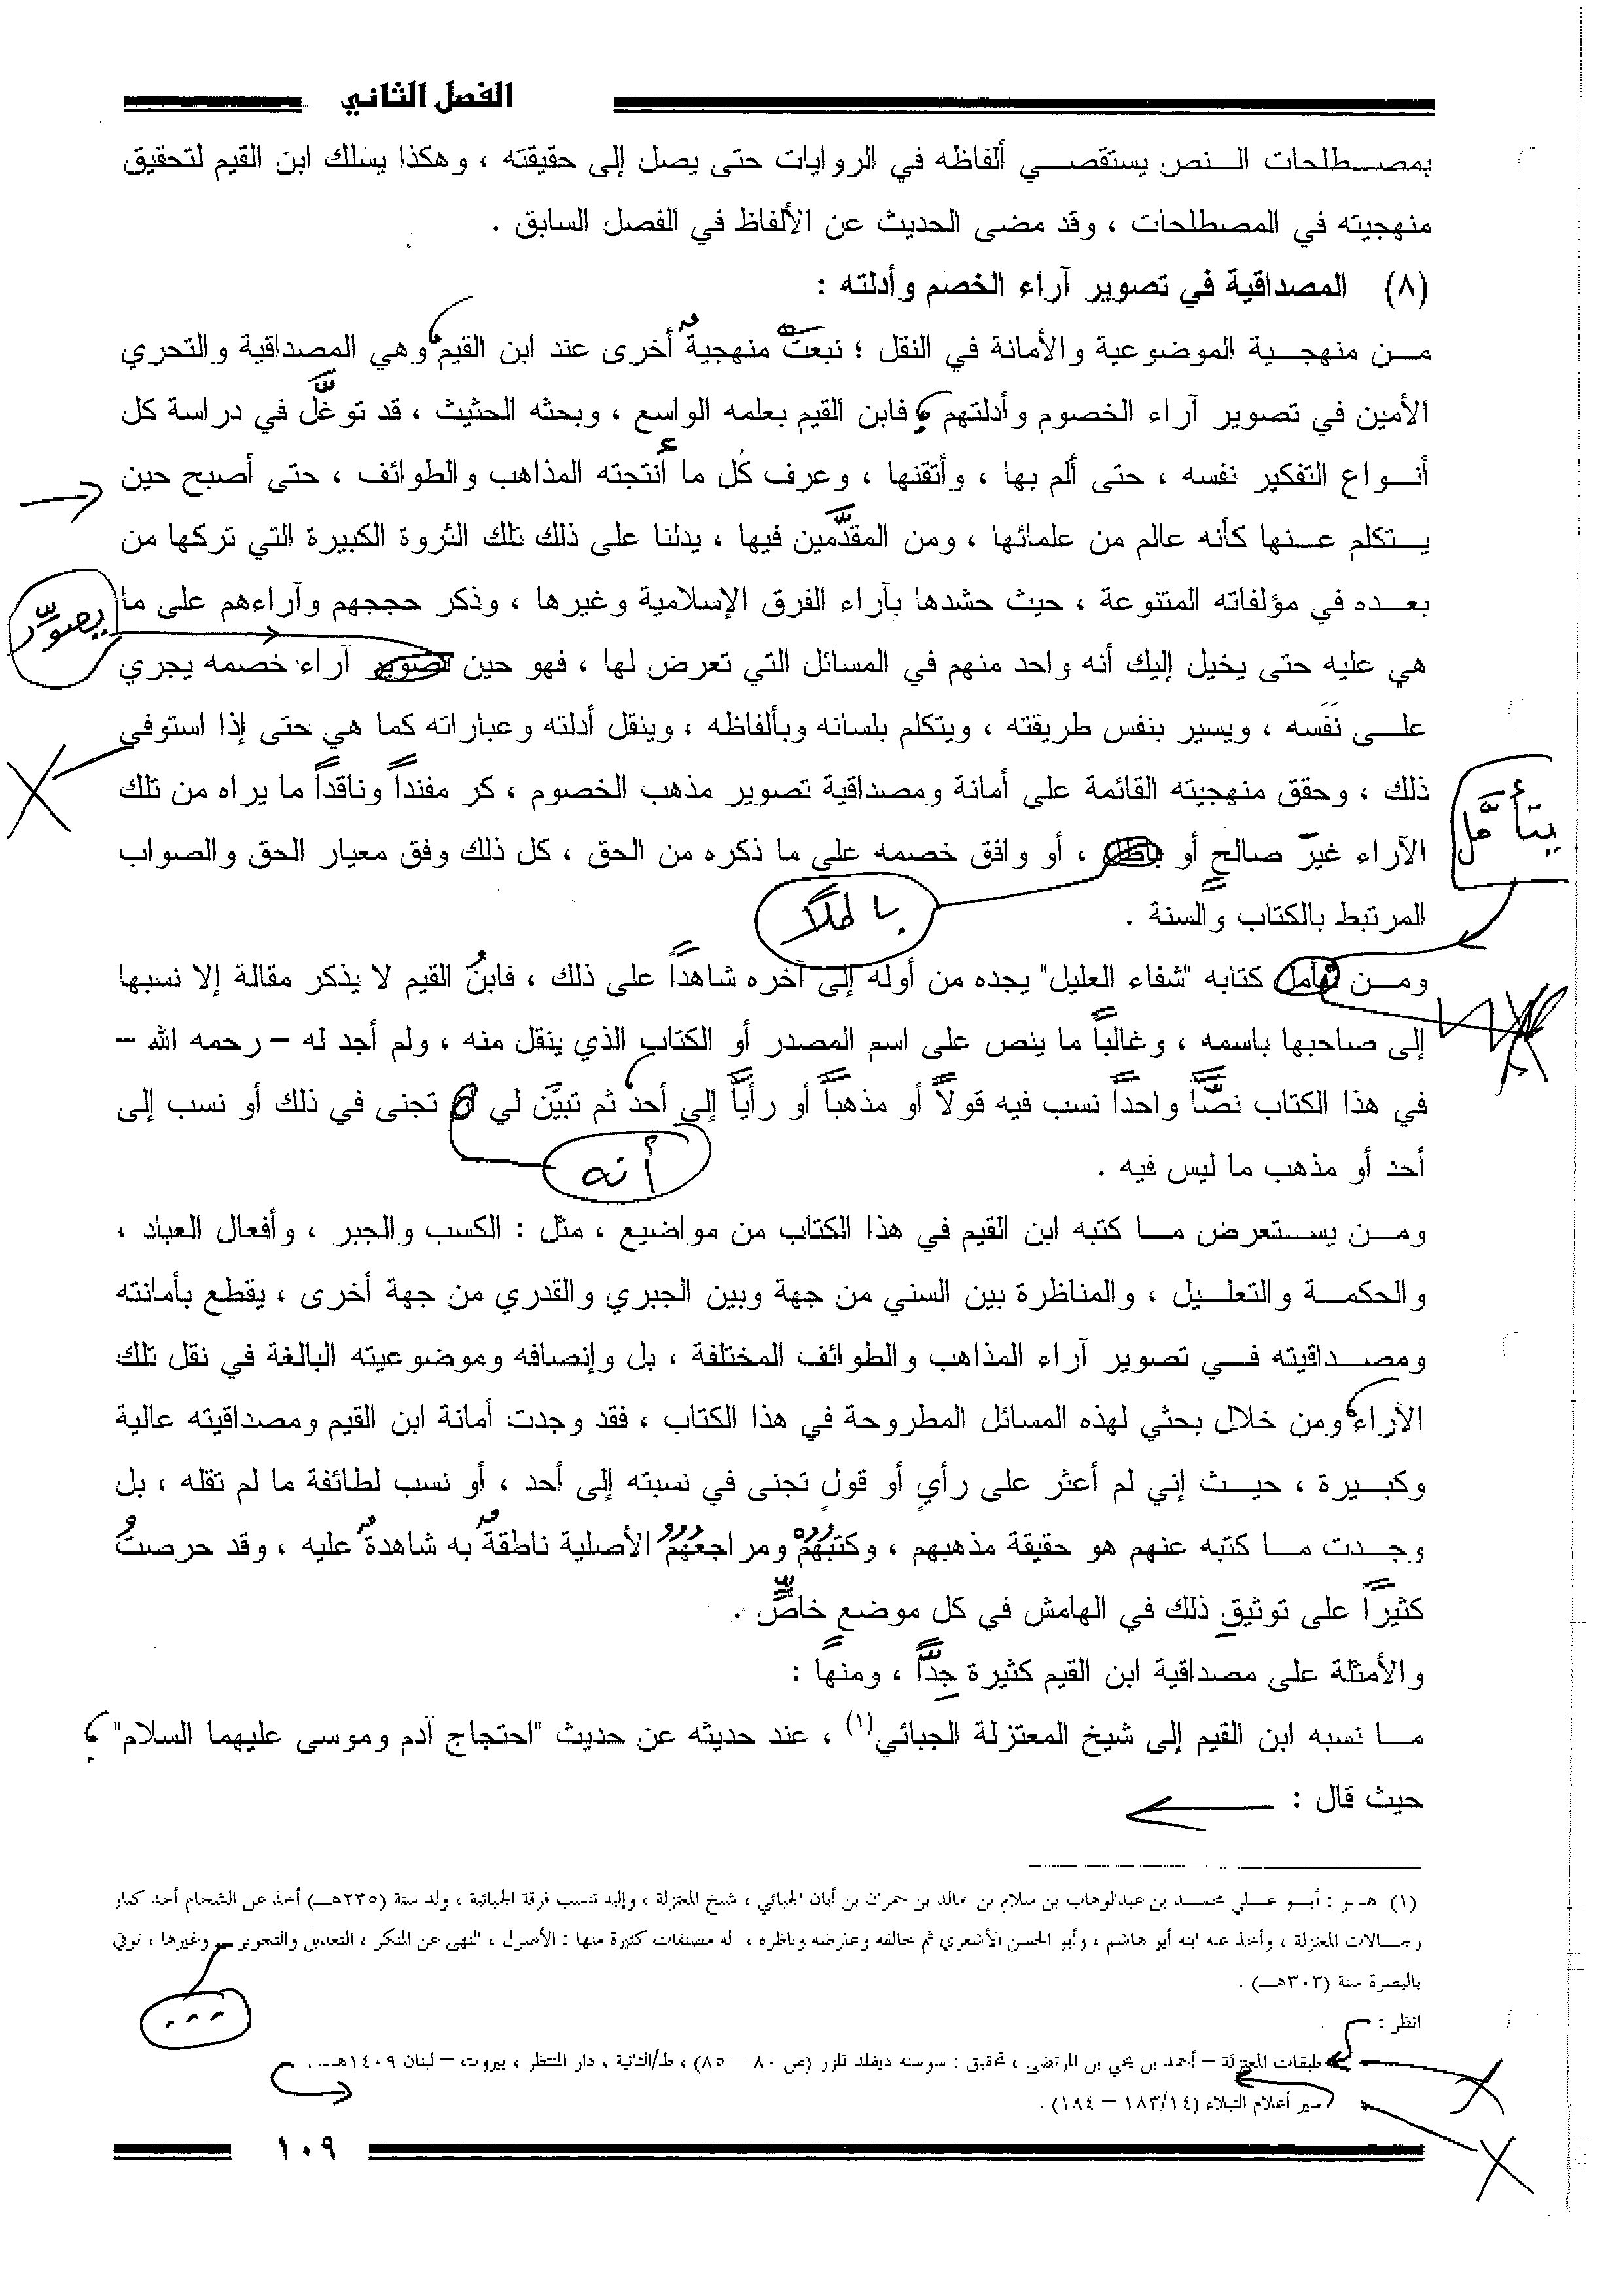 الفصل الثاني
بمصطلحات النص يستقصي ألفاظه في الروايات حتى يصل إلى حقيقته ، وهكذا يسلك ابن القيم لتحقيق
منهجيته في المصطلحات ، وقد مضى الحديث عن الألفاظ في الفصل السابق .
(٨) المصداقية في تصوير آراء الخصم وأدلته :
من منهجية الموضوعية والأمانة في النقل ؛ نبعتْ منهجيةٌ أخرى عند ابن القيم، وهي المصداقية والتحري
الأمين في تصوير آراء الخصوم وأدلتهم ؛ فابن القيم بعلمه الواسع ، وبحثه الحثيث ، قد توغَّل في دراسة كل
أنواع التفكير نفسه ، حتى ألم بها ، وأتقنها ، وعرف كُل ما أنتجته المذاهب والطوائف ، حتى أصبح حين
يتكلم عنها كأنه عالم من علمائها ، ومن المقدَّمين فيها ، يدلنا على ذلك تلك الثروة الكبيرة التي تركها من
بعده في مؤلفاته المتنوعة ، حيث حشدها بآراء الفرق الإسلامية وغيرها ، وذكر حججهم وآراءهم على ما
يصوِّر
هي عليه حتى يخيل إليك أنه واحد منهم في المسائل التي تعرض لها ، فهو حين تصوير آراء خصمه يجري
على نَفَسه ، ويسير بنفس طريقته ، ويتكلم بلسانه وبألفاظه ، وينقل أدلته وعباراته كما هي حتى إذا استوفى
ذلك ، وحقق منهجيته القائمة على أمانة ومصداقية تصوير مذهب الخصوم ، كر مفنداً وناقداً ما يراه من تلك
يتأمَّل
الآراء غيرَ صالحٍ أو باطل ، أو وافق خصمه على ما ذكره من الحق ، كل ذلك وفق معيار الحق والصواب
باطلاً
المرتبط بالكتاب والسنة .
ومن تأمل كتابه "شفاء العليل" يجده من أوله إلى آخره شاهداً على ذلك ، فابنُ القيم لا يذكر مقالة إلا نسبها
إلى صاحبها باسمه ، وغالباً ما ينص على اسم المصدر أو الكتاب الذي ينقل منه ، ولم أجد له – رحمه الله –
في هذا الكتاب نصَّاً واحداً نسب فيه قولاً أو مذهباً أو رأياً إلى أحد، ثم تبيَّن لي تجنى في ذلك أو نسب إلى
أنه
أحد أو مذهب ما ليس فيه .
ومن يستعرض ما كتبه ابن القيم في هذا الكتاب من مواضيع ، مثل : الكسب والجبر ، وأفعال العباد ،
والحكمة والتعليل ، والمناظرة بين السني من جهة وبين الجبري والقدري من جهة أخرى ، يقطع بأمانته
ومصداقيته في تصوير آراء المذاهب والطوائف المختلفة ، بل وإنصافه وموضوعيته البالغة في نقل تلك
الآراء، ومن خلال بحثي لهذه المسائل المطروحة في هذا الكتاب ، فقد وجدت أمانة ابن القيم ومصداقيته عالية
وكبيرة ، حيث إني لم أعثر على رأيٍ أو قولٍ تجنى في نسبته إلى أحد ، أو نسب لطائفة ما لم تقله ، بل
وجدت ما كتبه عنهم هو حقيقة مذهبهم ، وكتبُهُمْ ومراجعُهُمُ الأصلية ناطقةٌ به شاهدةٌ عليه ، وقد حرصتُ
كثيراً على توثيقِ ذلك في الهامش في كل موضع خاصٍّ .
والأمثلة على مصداقية ابن القيم كثيرة جِدَّاً ، ومنها :
ما نسبه ابن القيم إلى شيخ المعتزلة الجبائي(١) ، عند حديثه عن حديث "احتجاج آدم وموسى عليهما السلام" ؛
حيث قال :
(١) هو : أبو علي محمد بن عبدالوهاب بن سلام بن خالد بن حمران بن أبان الجبائي ، شيخ المعتزلة ، وإليه تنسب فرقة الجبائية ، ولد سنة (٢٣٥هـ) أخذ عن الشحام أحد كبار
رجالات المعتزلة ، وأخذ عنه ابنه أبو هاشم ، وأبو الحسن الأشعري ثم خالفه وعارضه وناظره ، له مصنفات كثيرة منها : الأصول ، النهى عن المنكر ، التعديل والتجوير – وغيرها ، توفي
بالبصرة سنة (٣٠٣هـ) .
...
انظر :
طبقات المعتزلة – أحمد بن يحي بن المرتضى ، تحقيق : سوسنه ديفلد فلزر (ص ٨٠ – ٨٥) ، ط/الثانية ، دار المنتظر ، بيروت – لبنان ١٤٠٩هـ .
سير أعلام النبلاء (١٨٣/١٤ – ١٨٤) .
١٠٩